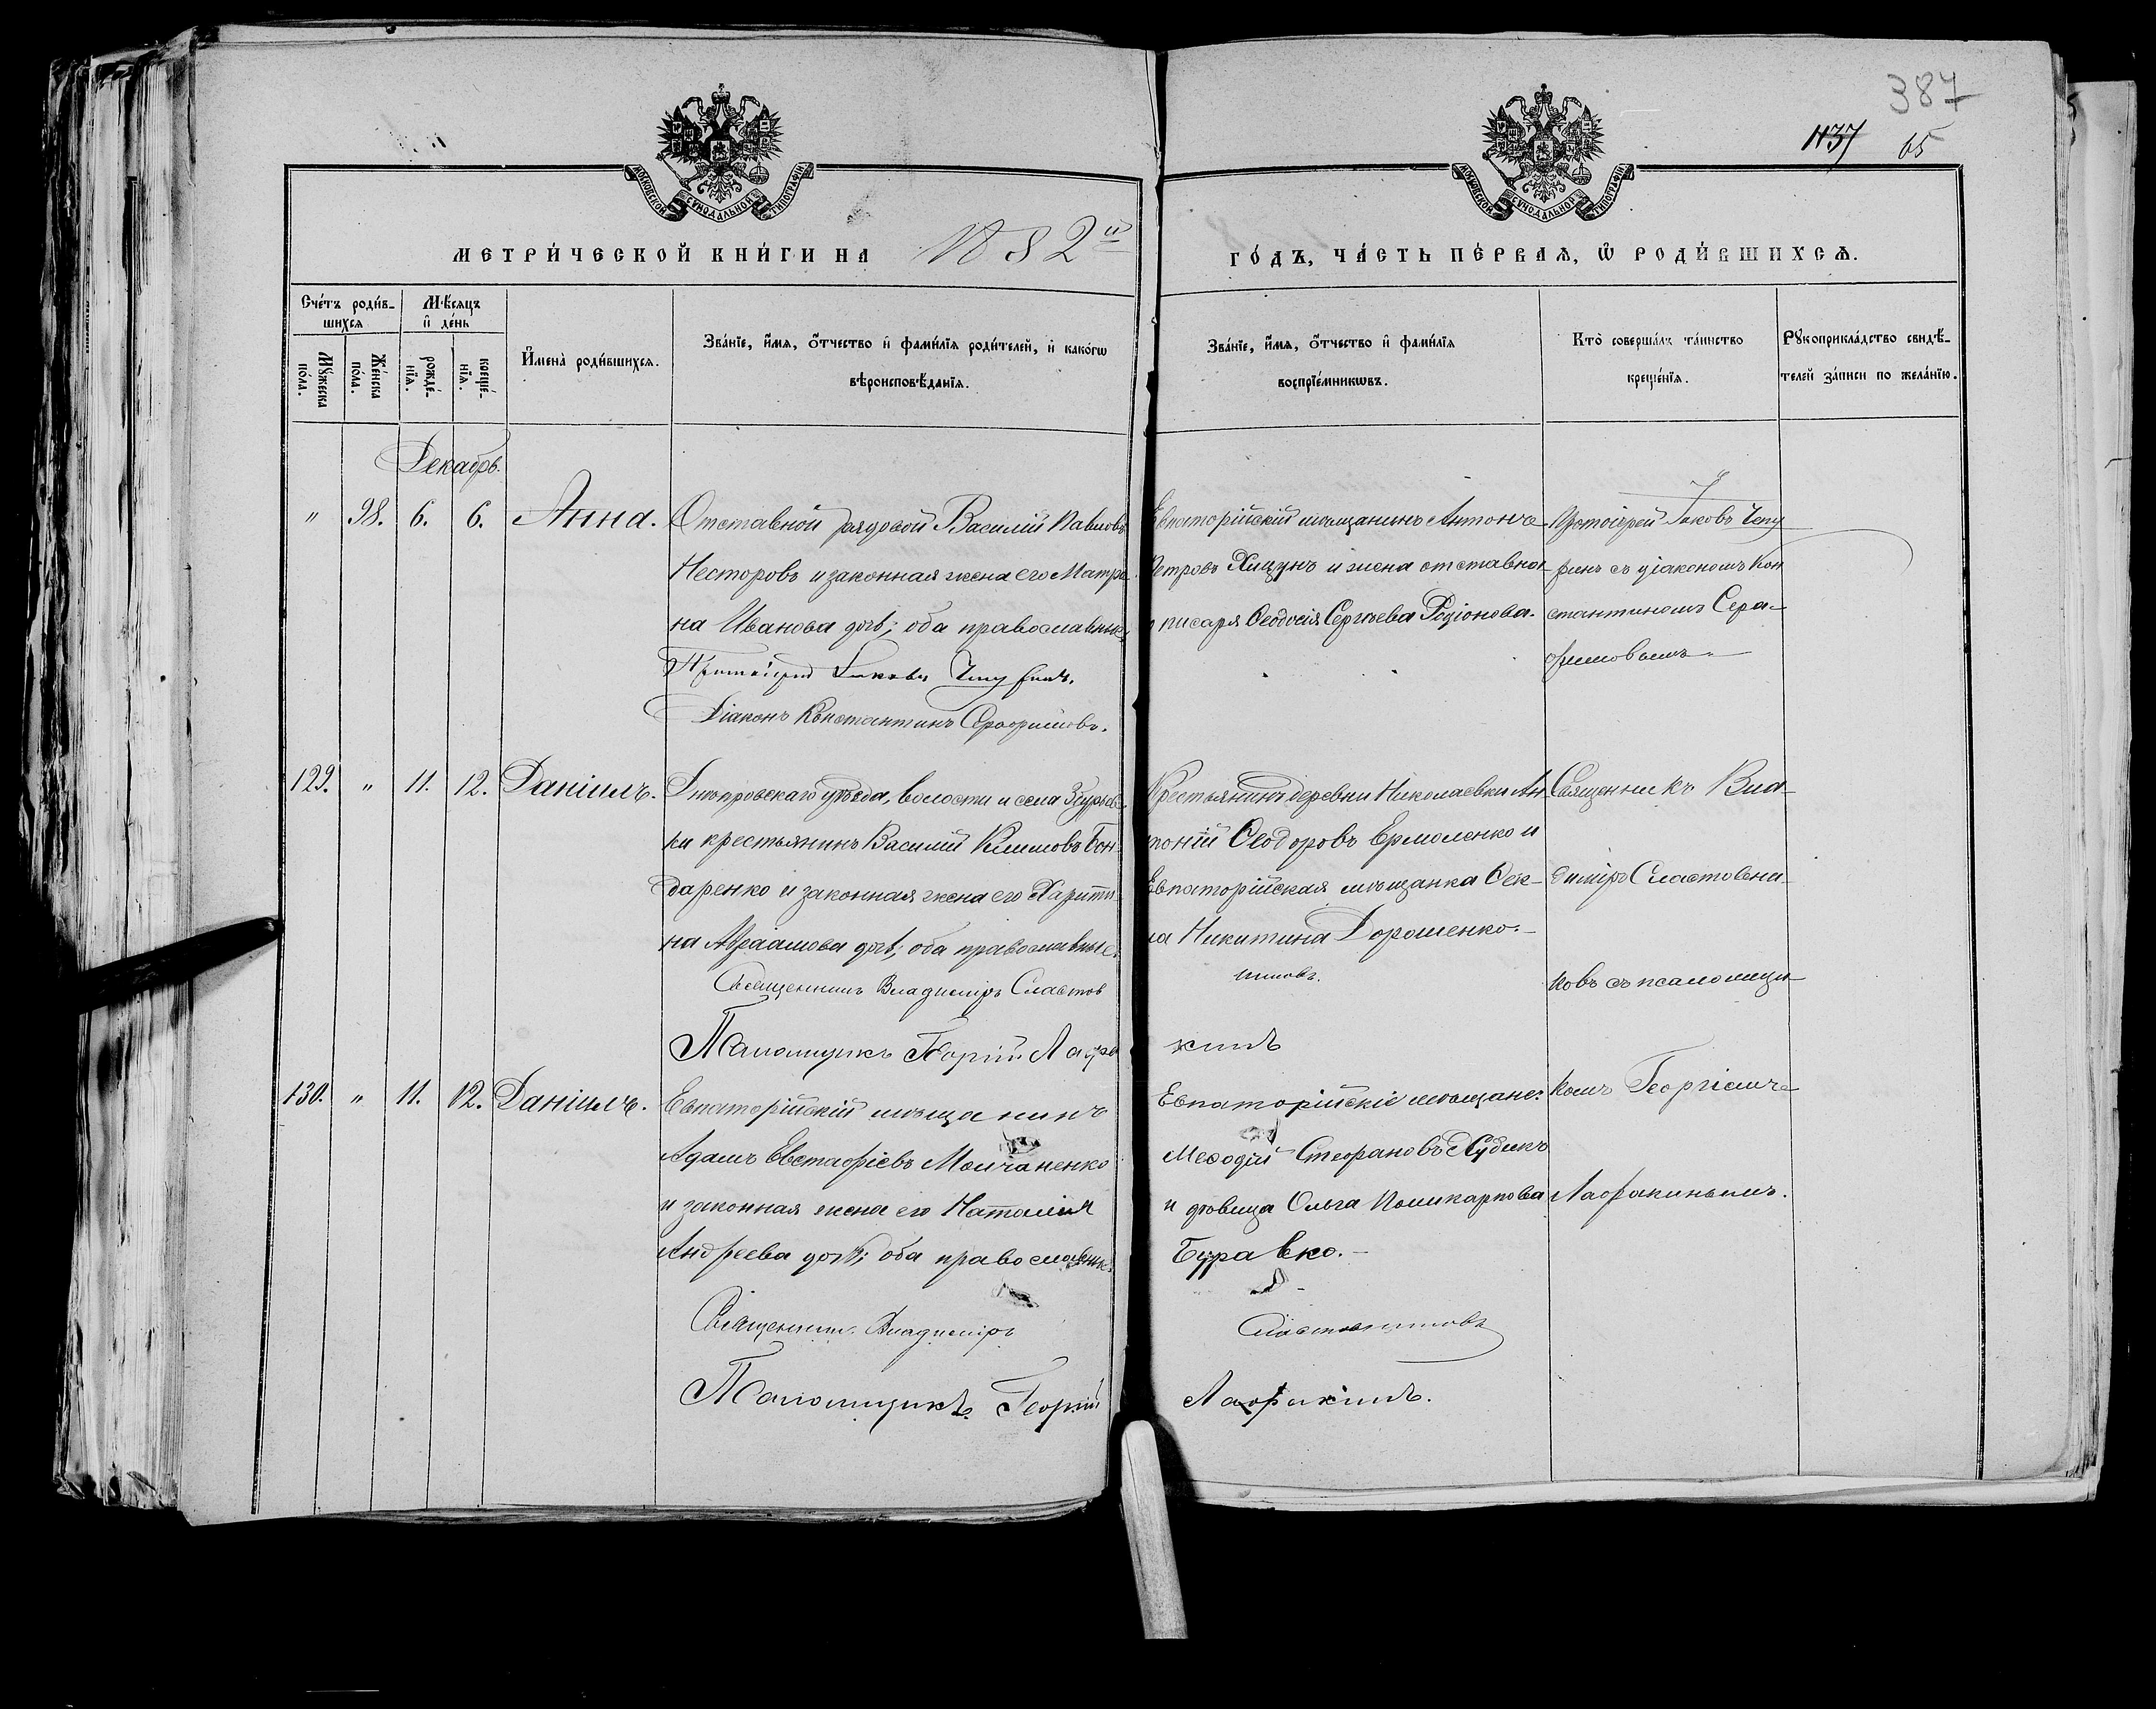 387
1137 65
МОСКОВСКОЙ СѴНОДАЛЬНОЙ ТИПОГРАФІИ
МОСКОВСКОЙ СѴНОДАЛЬНОЙ ТИПОГРАФІИ
МЕТРИ́ЧЕСКОЙ КНИ́ГИ НА 1882й ГО́ДЪ, ЧА́СТЬ ПЕ́РВАѦ, Ѡ҆ РОДИ́ВШИХСѦ.
Сче́тъ роди́в-
шихся
Мѣ́сяцъ
и҆ де́нь
Мꙋ́жеска
по́ла.
Же́нска
по́ла.
рожде́-
нїѧ.
креще́-
нїѧ.
И҆мена̀ роди́вшихся.
Зва́нїе, и҆́мя, ѻ҆́тчество и҆ фами́лїя роди́телей, и҆ како́гѡ
вѣроисповѣ́данїя.
Зва́нїе, и҆́мя, ѻ҆́тчество и҆ фами́лїя
воспрїе́мникѡвъ.
Кто̀ соверша́лъ та́инство
креще́нїя.
Рꙋкоприкла́дство свидѣ́-
телей за́писи по жела́нїю.
Декабрь.
" 98. 6. 6. Анна.
Отставной рядовой Василій Павловъ
Несторовъ и законная жена его Матро-
на Иванова дочь; оба православные.
Протоіерей Іаковъ Чепуринъ.
Діаконъ Константинъ Серафимовъ.
Евпаторійскій мѣщанинъ Антонъ
Петровъ Хицунъ и жена отставно-
писаря Ѳеодосія Сергѣева Родіонова.
Протоіерей Іаковъ Чепу
ринъ съ діакономъ Кон
стантиномъ Сера-
фимовымъ
129. " 11. 12. Даніилъ.
Днѣпровскаго уѣзда, волости и села Згурьев-
ки крестьянинъ Василій Климовъ Бон-
даренко и законная жена его Харити-
на Авраамова дочь; оба православные.
Священникъ Владиміръ Сластов
Псаломщикъ Георгій Лафа
Крестьянинъ деревни Николаевки Ан-
тоній Ѳеодоровъ Ермоленко и
Евпаторійская мѣщанка Ѳек-
ла Никитина Дорошенко.
никовъ.
кинъ
Священникъ Вла-
диміръ Сластовни-
ковъ съ псаломщи-
комъ Георгіемъ
Лафакинымъ.
130. " 11. 12. Даніилъ.
Евпаторійскій мѣщанинъ
Адамъ Евстафіевъ Молчаненко
и законная жена его Наталія
Андреева дочь; оба православные.
Священникъ Владиміръ
Псаломщикъ Георгій
Евпаторійскіе мѣщане:
Меѳодій Стефановъ Худикъ
и дѣвица Ольга Поликарпова
Буравко.
Сластовниковъ
Лафакинъ.